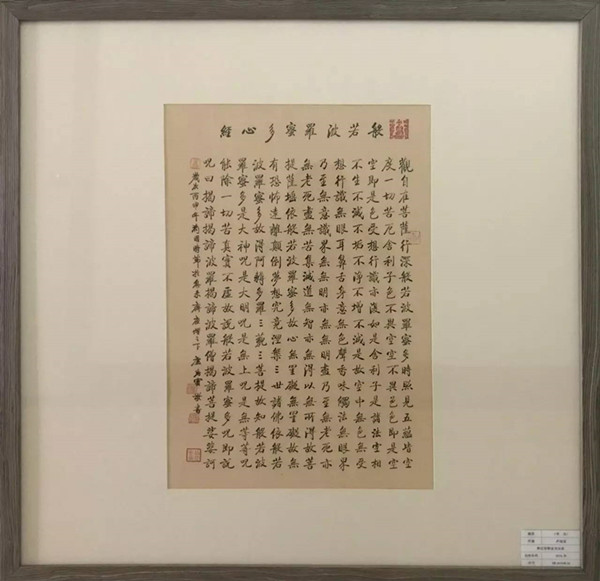 般若波羅蜜多心經
觀自在菩薩行深般若波羅蜜多時照見五蘊皆空
度一切苦厄舍利子色不異空空不異色色即是空
空即是色受想行識亦復如是舍利子是諸法空相
不生不滅不垢不淨不增不減是故空中無色無受
想行識無眼耳鼻舌身意無色聲香味觸法無眼界
乃至無意識界無無明亦無無明盡乃至無老死亦
無老死盡無苦集滅道無智亦無得以無所得故菩
提薩埵依般若波羅蜜多故心無罣礙無罣礙故無
有恐怖遠離顛倒夢想究竟涅槃三世諸佛依般若
波羅蜜多故得阿耨多羅三藐三菩提故知般若波
羅蜜多是大神咒是大明咒是無上咒是無等等咒
能除一切苦真實不虛故說般若波羅蜜多咒即說
咒曰揭諦揭諦波羅揭諦波羅僧揭諦菩提娑婆訶